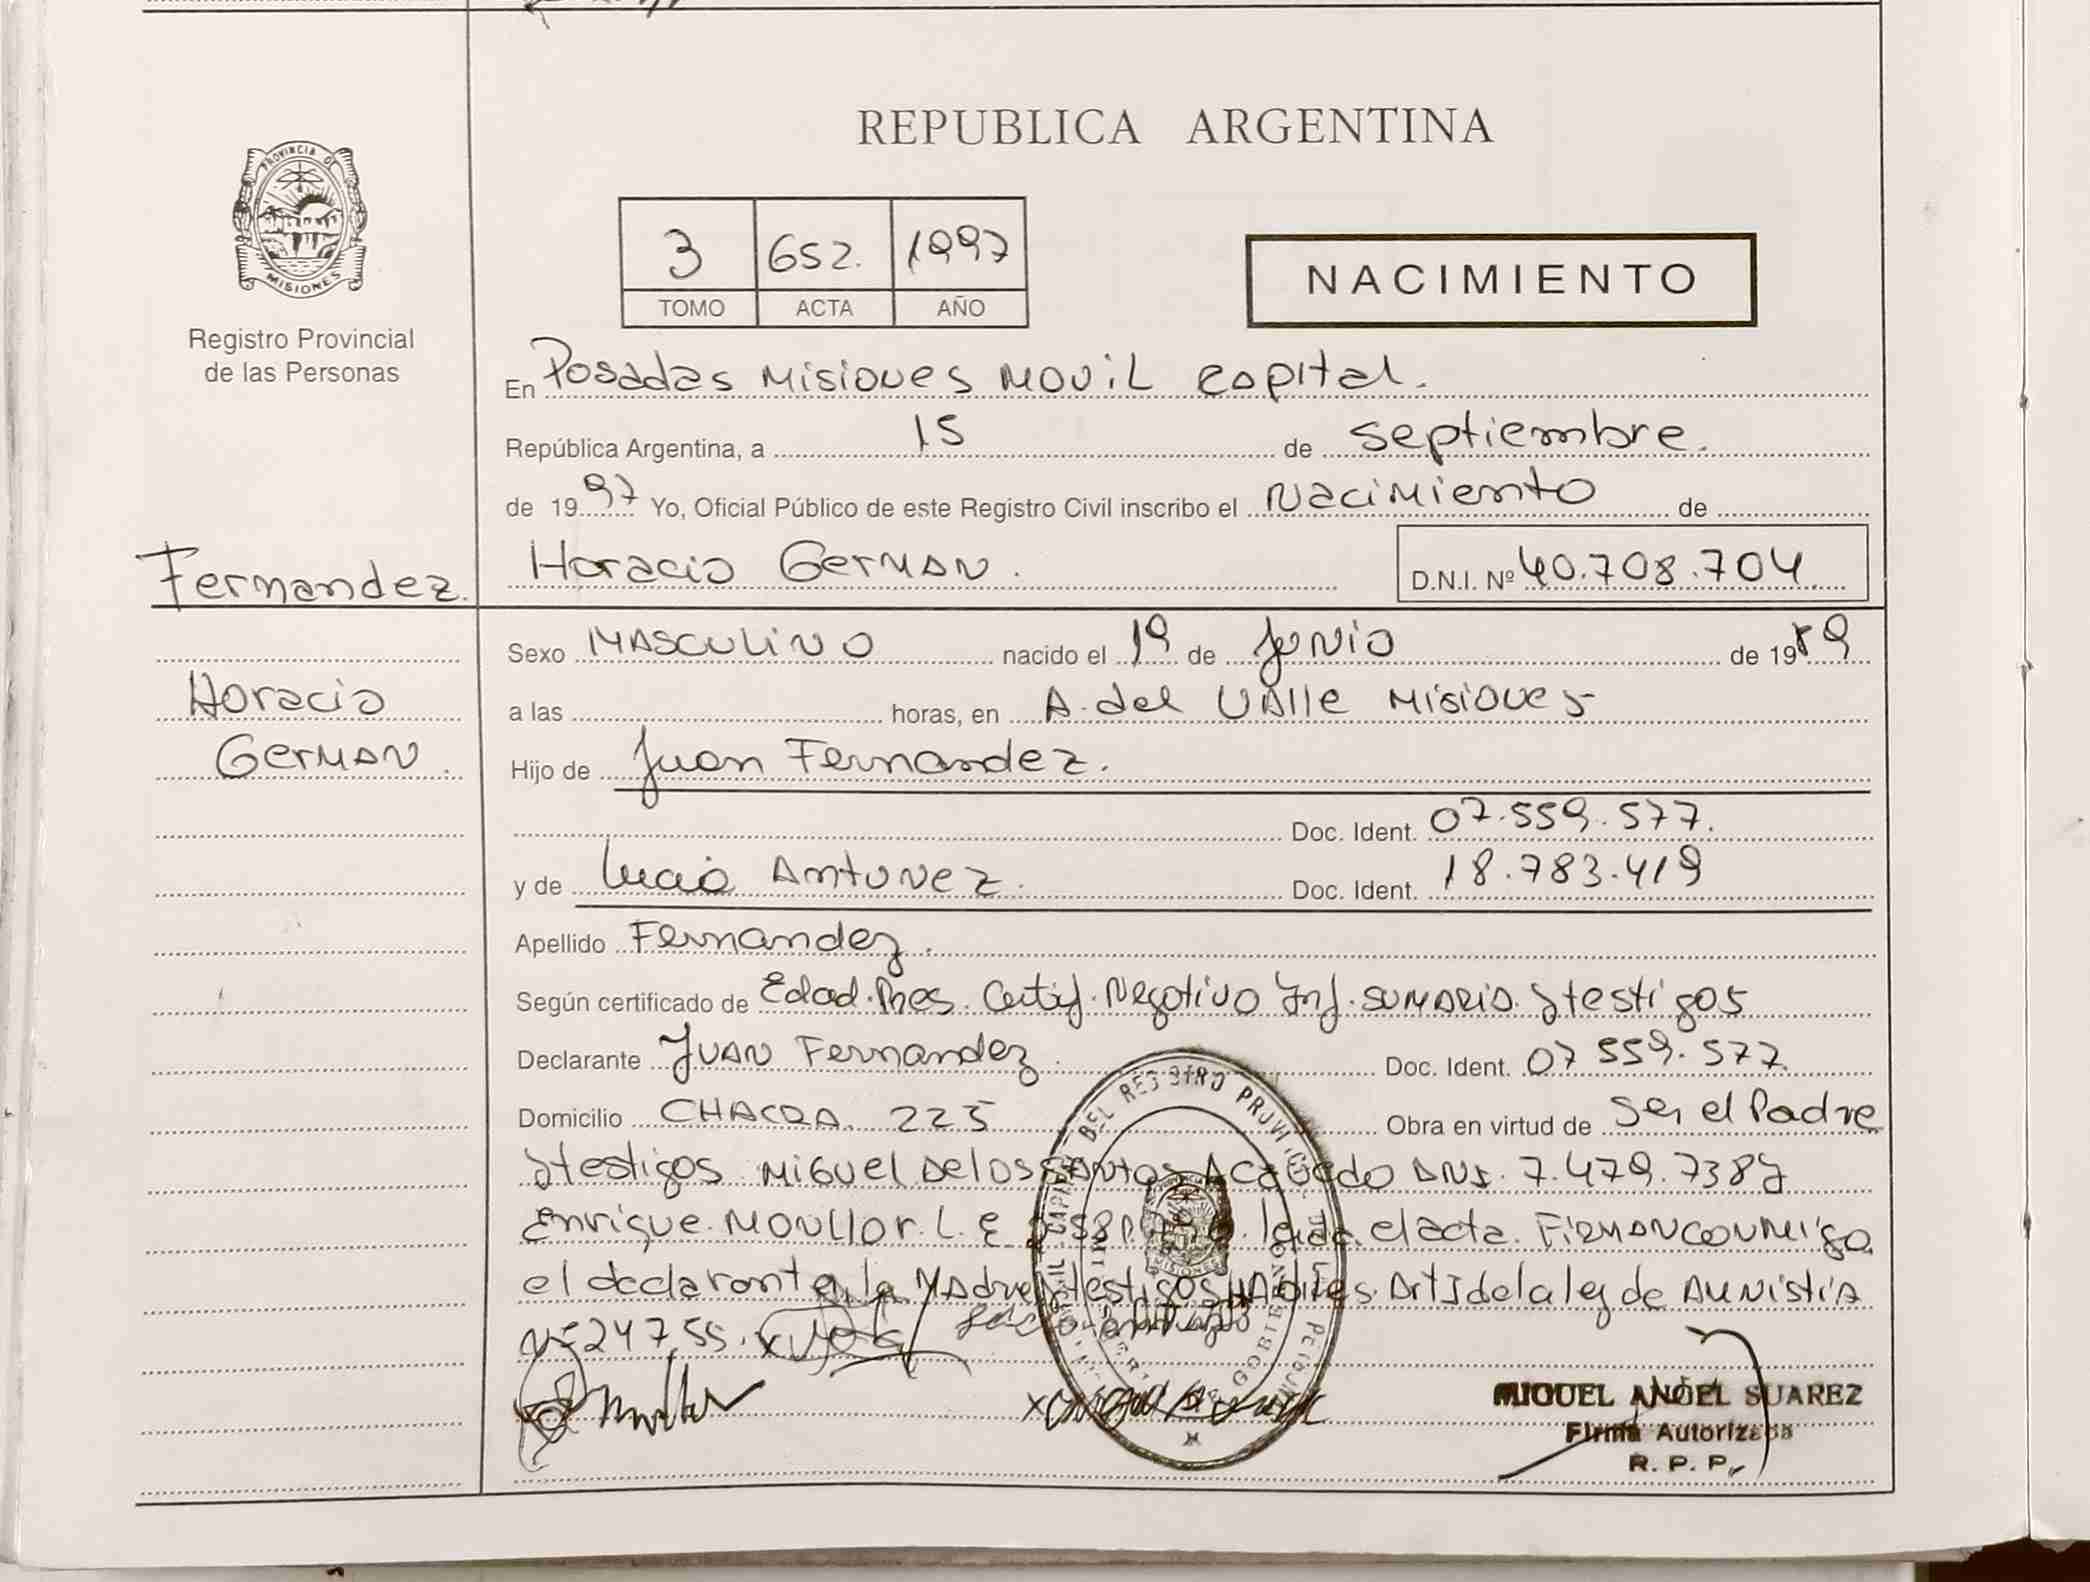 REPUBLICA ARGENTINA
PROVINCIA DE MISIONES
Registro Provincial
de las Personas
3 652. 1997
TOMO ACTA AÑO
NACIMIENTO
En Posadas Misiones Movil Capital.
República Argentina, a 15 de septiembre.
de 1997 Yo, Oficial Público de este Registro Civil inscribo el Nacimiento de
Fernandez. Horacio German. D.N.I. Nº 40.708.704
Sexo MASCULINO nacido el 19 de Junio de 1989
Horacio a las horas, en A. del Valle Misiones
German. Hijo de Juan Fernandez.
Doc. Ident. 07.559.577.
y de Lucia Antunez. Doc. Ident. 18.783.419
Apellido Fernandez.
Según certificado de Edad. Pres. Certif. Negativo Inf. SUMARIA. y testigos
Declarante Juan Fernandez. Doc. Ident. 07 559.577.
Domicilio CHACRA. 225 Obra en virtud de Ser el Padre
y testigos Miguel De los Santos Acevedo DNI. 7.479.738 y
Enrique. Moullor. L.E leida el acta. Firman conmigo
el declarante, la Madre y testigos Habiles. Art 1 de la ley de Amnistia
Nº 24755.
MIGUEL ANGEL SUAREZ
Firma Autorizada
R. P. P.